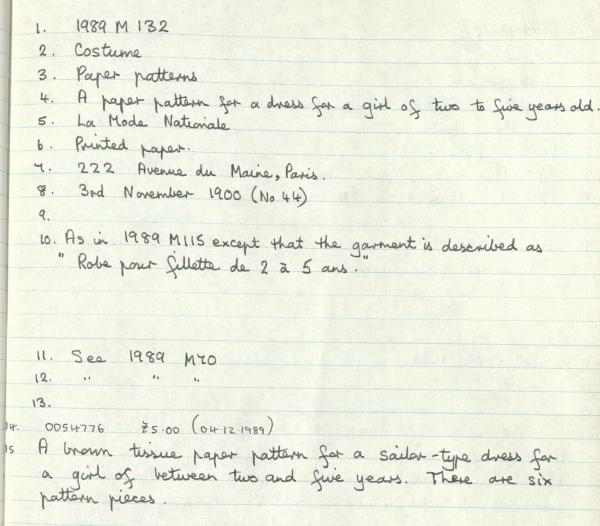 1. 1989 M 132
2. Costume
3. Paper patterns
4. A paper pattern for a dress for a girl of two to five years old.
5. La Mode Nationale
6. Printed paper.
7. 222 Avenue du Maine, Paris.
8. 3rd November 1900 (No 44)
9.
10. As in 1989 M115 except that the garment is described as
" Robe pour fillette de 2 à 5 ans."
11. See 1989 M70
12. " " "
13.
14. 0054776 £5.00 (04.12.1989)
15 A brown tissue paper pattern for a sailor-type dress for
a girl of between two and five years. There are six
pattern pieces.